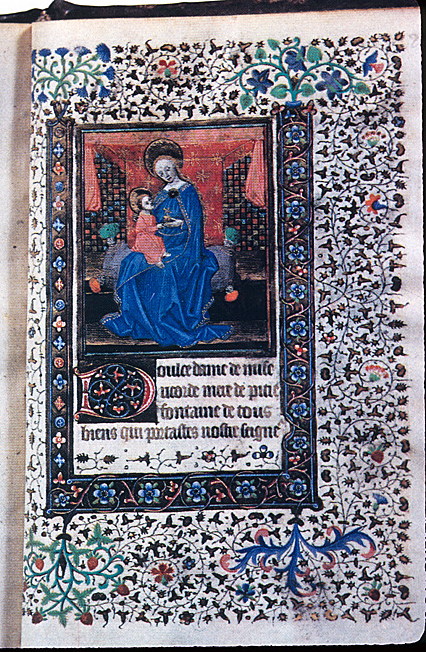 Doulce dame de mise
ricorde mere de pitie
fontaine de tous
biens qui portastes nostre seigne